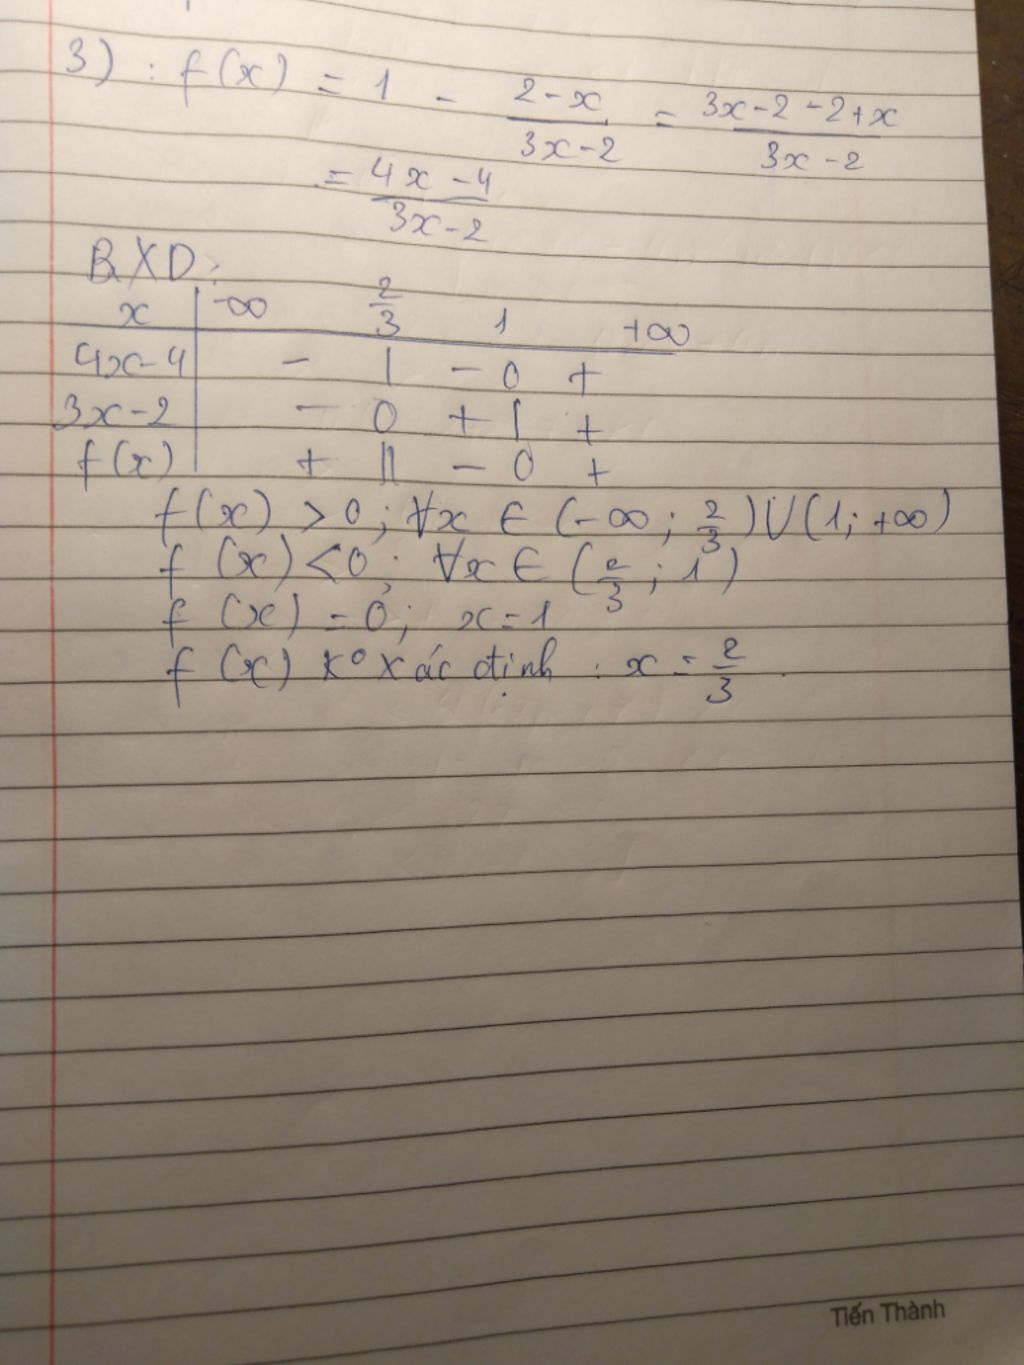 3) : f(x) = 1 - (2-x)/(3x-2) = (3x-2-2+x)/(3x-2)
= (4x-4)/(3x-2)
BXD:
x | -∞ 2/3 1 +∞
4x-4 | - | - 0 +
3x-2 | - 0 + | +
f(x) | + || - 0 +
f(x) > 0; ∀x ∈ (-∞; 2/3) ∪ (1; +∞)
f(x) < 0; ∀x ∈ (2/3; 1)
f(x) = 0; x = 1
f(x) K° xác định : x = 2/3
Tiến Thành